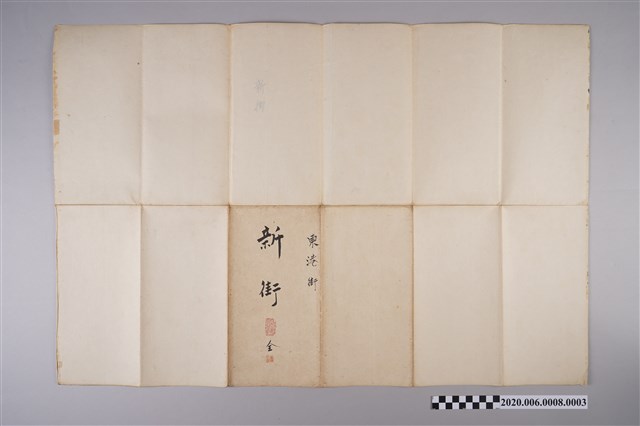 東港街
新街
全
2020.006.0008.0003